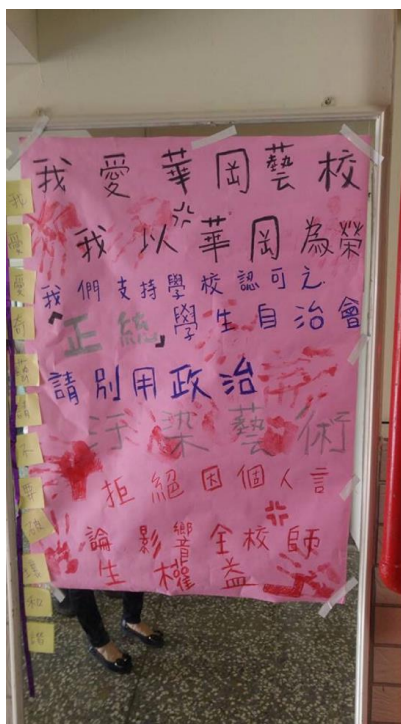 我愛華岡藝校
我以華岡為榮
我們支持學校認可之
「正統」學生自治會
請別用政治
汙染藝術
拒絕因個人言
論影響全校師
生權益
我
愛
愛
奇
藝
不
和
諧